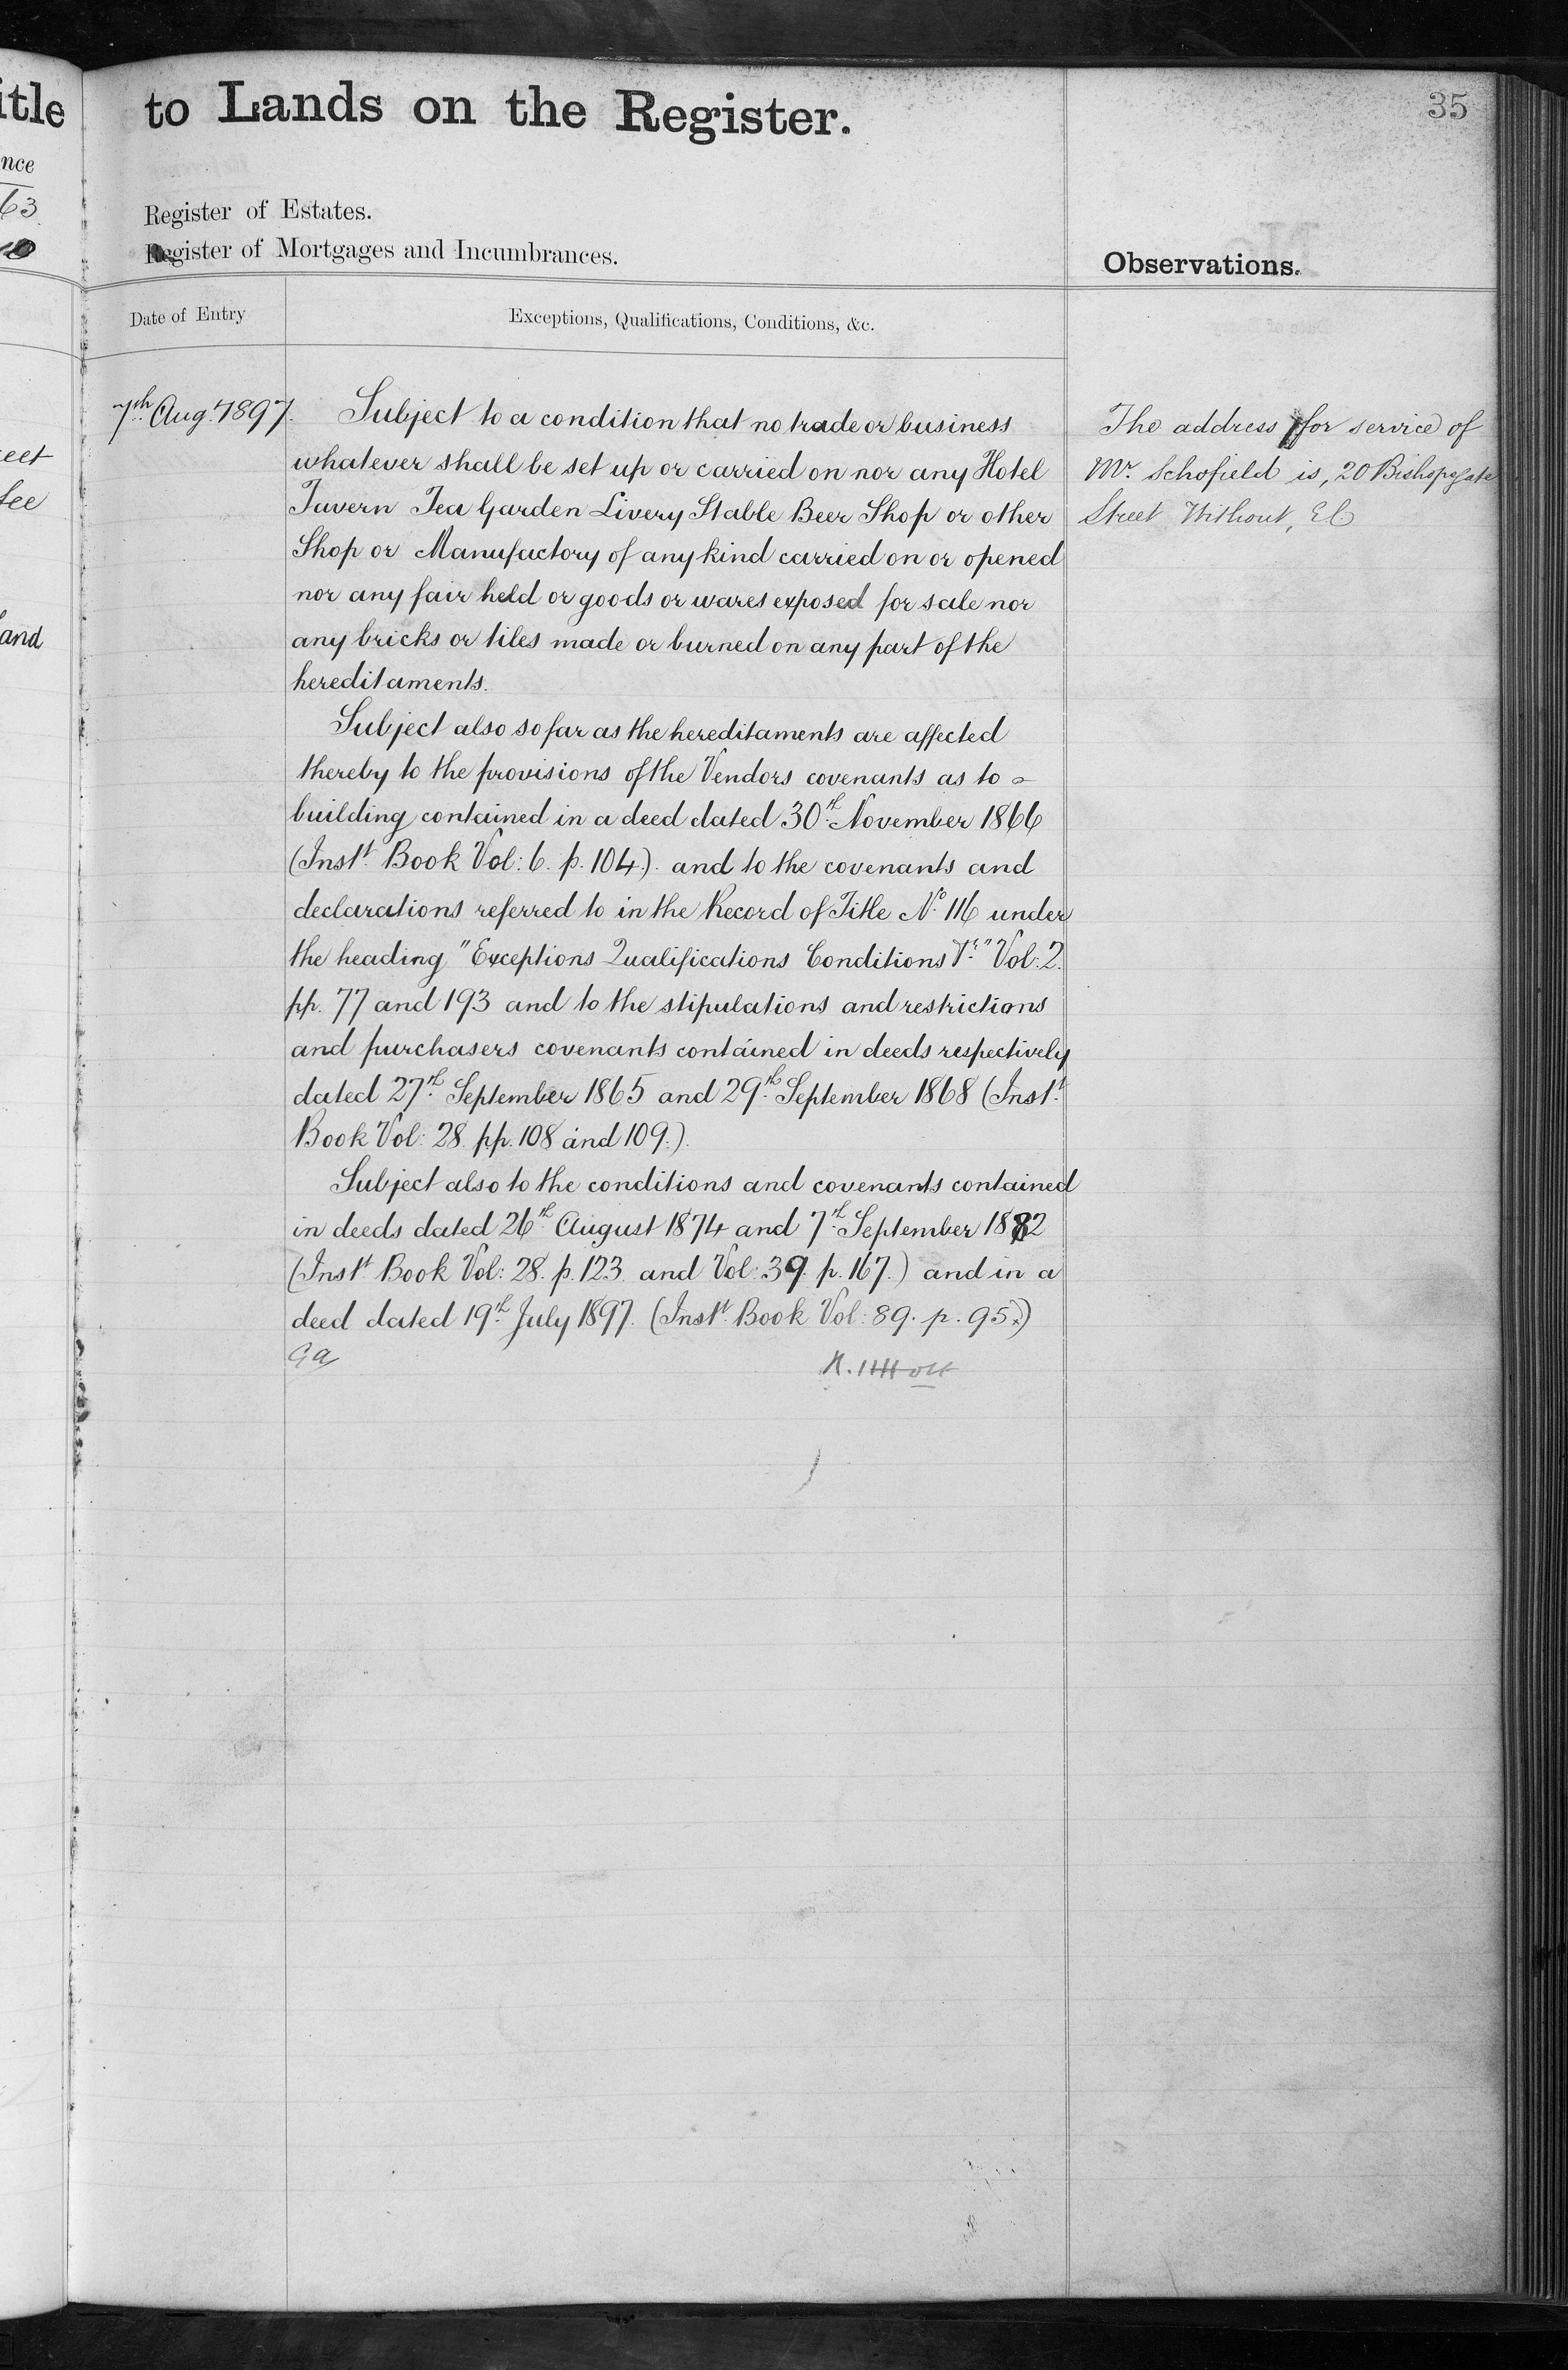 itle
nce
63
eet
fee
and
to Lands on the Register.
35
Register of Estates.
Register of Mortgages and Incumbrances.
Observations.
Date of Entry
Exceptions, Qualifications, Conditions, &c.
7th Aug. 1897.
Subject to a condition that no trade or business
whatever shall be set up or carried on nor any Hotel
Tavern Tea Garden Livery Stable Beer Shop or other
Shop or Manufactory of any kind carried on or opened
nor any fair held or goods or wares exposed for sale nor
any bricks or tiles made or burned on any part of the
hereditaments.
Subject also so far as the hereditaments are affected
thereby to the provisions of the Vendors covenants as to
building contained in a deed dated 30th November 1866
(Instt Book Vol: 6. p. 104.) and to the covenants and
declarations referred to in the Record of Title No. 116 under
the heading "Exceptions Qualifications Conditions &c" Vol: 2.
pp. 77 and 193 and to the stipulations and restrictions
and purchasers covenants contained in deeds respectively
dated 27th September 1865 and 29th September 1868 (Instt
Book Vol: 28. pp. 108 and 109.).
Subject also to the conditions and covenants contained
in deeds dated 26th August 1874 and 7th September 1882
(Instt Book Vol: 28. p. 123 and Vol: 39. p. 167.) and in a
deed dated 19th July 1897. (Instt Book Vol: 89. p. 95.)
The address for service of
Mr. Schofield is, 20 Bishopsgate
Street Without, EC